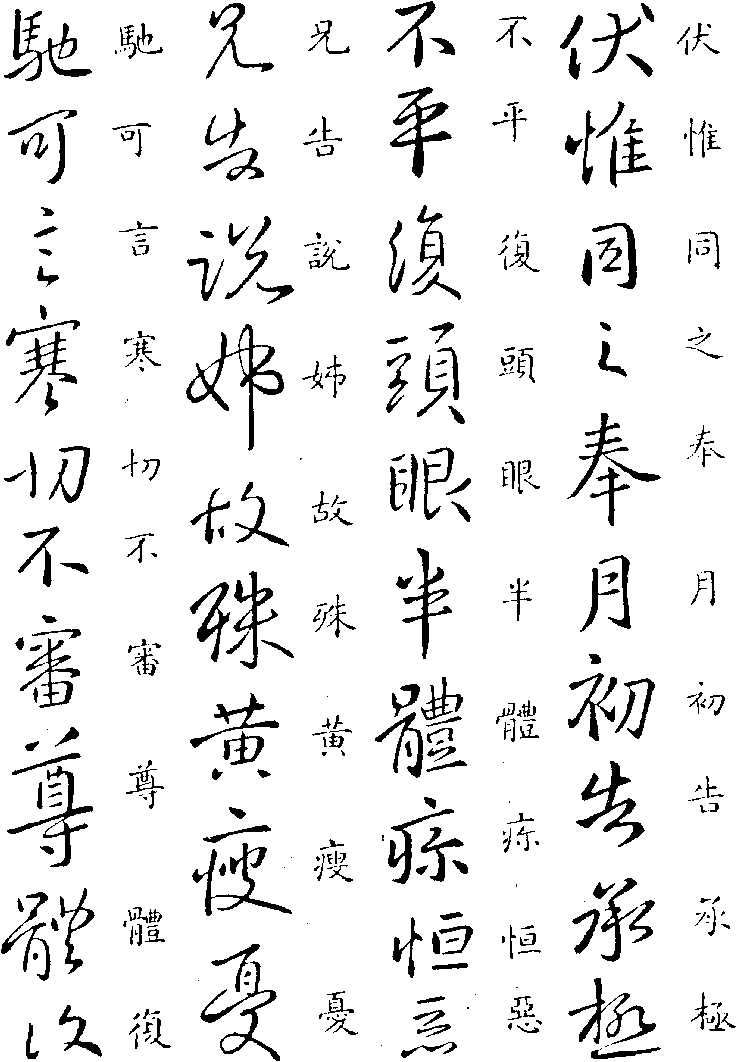 伏惟同之奉月初告承極
伏惟同之奉月初告承極
不平復頭眼半體疼恒惡
不平復頭眼半體疼恒惡
兄告說姊故殊黄瘦憂
兄告說姊故殊黄瘦憂
馳可言寒切不審尊體復
馳可言寒切不審尊體復